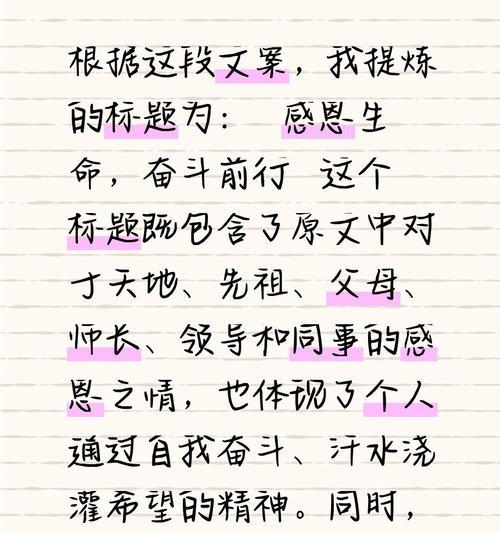 根据这段文案，我提炼
的标题为： 感恩生
命，奋斗前行 这个
标题既包含了原文中对
于天地、先祖、父母、
师长、领导和同事的感
恩之情，也体现了个人
通过自我奋斗、汗水浇
灌希望的精神。同时，